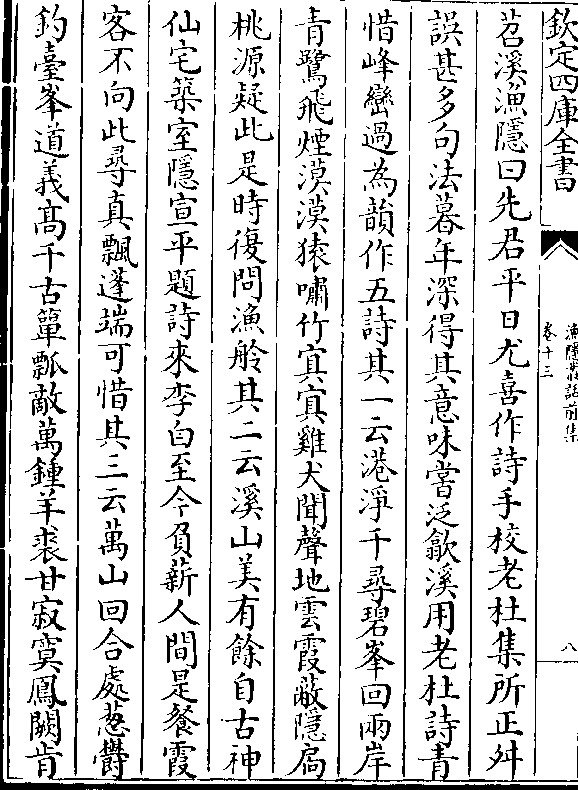 欽定四庫全書
漁隱叢話前集
卷十三
八
苕溪漁隱曰先君平日尤喜作詩手校老杜集所正舛
誤甚多句法暮年深得其意味嘗泛歙溪用老杜詩青
惜峰巒過為韻作五詩其一云港淨千尋碧峯回兩岸
青鷺飛煙漠漠猿嘯竹㝠㝠雞犬聞聲地雲霞蔽隱扃
桃源疑此是時復問漁舲其二云溪山美有餘自古神
仙宅築室隱宣平題詩來李白至今負薪人間是餐霞
客不向此尋真飄蓬端可惜其三云萬山回合處葱鬱
釣臺峯道義高千古簞瓢敵萬鍾羊裘甘寂寞鳳闕肯